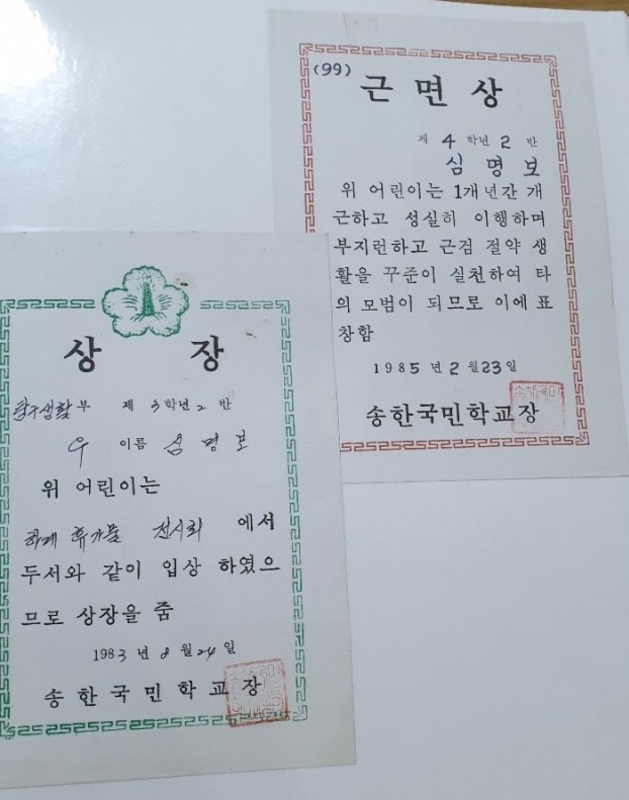 (99)
근면상
제 4 학년 2 반
심명보
위 어린이는 1개년간 개
근하고 성실히 이행하며
부지런하고 근검 절약 생
활을 꾸준이 실천하여 타
의 모범이 되므로 이에 표
창함
1985 년 2 월 23 일
송한국민학교장
상 장
탐구생활부 제 3 학년 2 반
우 이름 심명보
위 어린이는
하계 휴가물 전시회 에서
두서와 같이 입상 하였으
므로 상장을 줌
1983 년 8 월 24 일
송한국민학교장